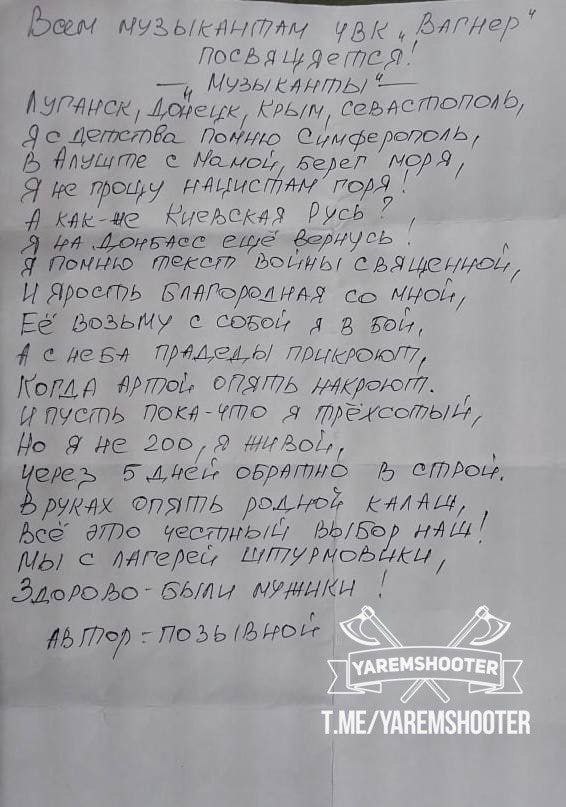 Всем музыкантам ЧВК „Вагнер“
посвящяется!
— „Музыканты“ —
Луганск, Донецк, Крым, Севастополь,
Я с детства помню Симферополь,
В Алуште с мамой, берег моря,
Я не прощу нацистам горя!
А как-же Киевская Русь?
Я на Донбасс ещё вернусь!
Я помню текст войны священной,
И ярость благородная со мной,
Её возьму с собой я в бой,
А с неба прадеды прикроют,
Когда артой опять накроют.
И пусть пока-что я трёхсотый,
Но я не 200, я живой,
Через 5 дней обратно в строй.
В руках опять родной калаш,
Всё это честный выбор наш!
Мы с лагерей штурмовики,
Здорово-были мужики!
Автор = позывной
YAREMSHOOTER
T.ME/YAREMSHOOTER